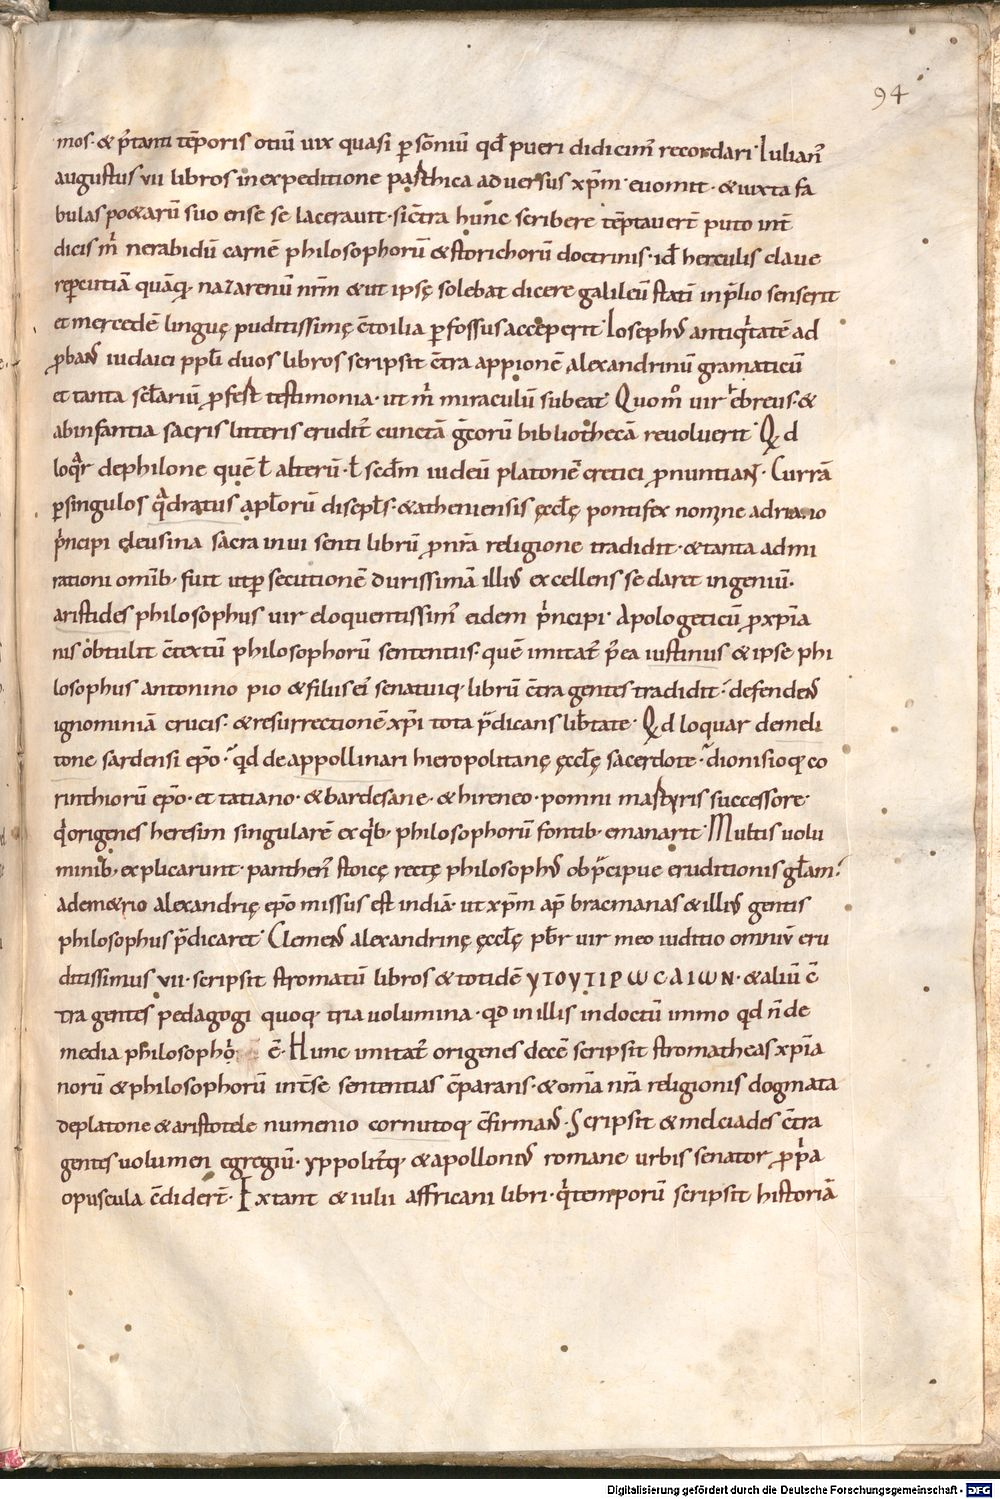 94
mos· & p̄tanti tēporis otiū uix quasi p sōniū qđ pueri didicim̄ recordari· Iulian̄
augustus vii libros inexpeditione parthica aduersus xp̄m euomit· & iuxta fa
bulas po&arū suo ense se lacerauit· sic̄tra hunc scribere tēptauerī puto int̄
dicis m̄ nerabidū carnē philosophorū & storichorū doctrinis· id herculis claue
repcutiā quāq· nazarenū nr̄m & ut ipsę solebat dicere galileū statī inp̄lio senserit
et mercedē linguę puditissimę c̄to ilia pfossus acceperit· Ioseph' antiq'tatē ad
pban̄ iudaici ppl̄i duos libros scripsit c̄tra appionē alexandrinū gramaticū
et tanta sclariū pfert testimonia· ut m̄ miraculū subeat· Quom̄ uir ebreus· &
abinfantia sacris litteris erudit' cunctā gc̄orū bibliothecā reuoluerit· Qd
loq'r dephilone quē ł alterū· ł sedm̄ iudeū platonē cretici pnuntian̄· Currā
psingulos q'dratus apl̄orū discipl̄s· & atheniensis ęccl̄ę pontifex nonne adriano
p'ncipi eleusina sacra inui senti librū pnr̄a religione tradidit· & tanta admi
rationi omīb· fuit utp secutionē durissimā illi' excellens se daret ingeniū·
aristides philosophus uir eloquentissim' eidem p'ncipi· Apologeticū pxp̄ia
nis obtulit c̄textū philosophorū sententiis· quē imitat' p̄ea iustinus & ipse phi
losophus antonino pio & filiis ei' senatuiq· librū c̄tra gentes tradidit· defenden̄
ignominiā crucis· & resurrectionē xp̄i tota p̄dicans lib̄tate· Qd loquar demeli
tone sardensi ep̄o· qd de appollinari hieropolitanę ęccl̄ę sacerdote· dionisioq· co
rinthiorū ep̄o· et tatiano· & bardesane· & hireneo· pomni martyris successore·
q'origenes heresim singularē ex q'b· philosophorū fontib· emanarit· Multis uolu
minib· explicarunt· panthen' stoicę rectę philosoph' ob p̄cipue eruditionis gl̄am·
adem&rio alexandrię ep̄o missus est indiā· ut xp̄m ap̄ bracmanas & illi' gentis
philosophus p̄dicaret· Clemen̄ alexandrinę ęccl̄ę pb̄r uir meo iuditio omniū eru
ditissimus vii· scripsit stromatū libros & totidē ΥΤΟΥΤΙΡωСΑΙωΝ· & aliū c̄
tra gentes pedagogi quoq· tria uolumina· qđ inillis indoctū immo qđ n̄ de
media philosophō ē· Hunc imitat' origenes decē scripsit stromatheas xp̄ia
norū & philosophorū int̄se sententias c̄parans· & om̄a nr̄a religionis dogmata
deplatone & aristotele numenio cornutoq c̄firman̄· Scripsit & melciades c̄tra
gentes uolumen egregiū· yppolit'q· & apolloni' romane urbis senator pp̄a
opuscula c̄didert̄· Extant & iulii affricani libri· q'temporū scripsit historiā
Digitalisierung gefördert durch die Deutsche Forschungsgemeinschaft - DFG